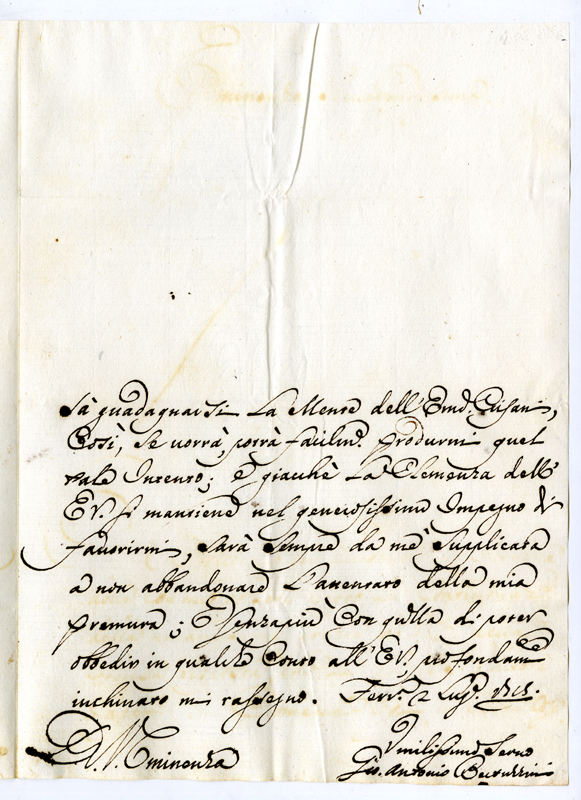 sà guadagnarsi la Mente dell'Emo. Pisani,
Così, se vorrà, potrà facilm. produrmi quel
tale Intento; e giacchè la Clemenza dell'
EV. si mantiene nel generosissimo Impegno di
favorirmi, sarà sempre da me supplicata
a non abbandonare l'attentato della mia
premura; E senza più con quella di poter
obbedir in qualche Conto all'EV., profondam.
inchinato mi rassegno. Ferr. 2 Lug.
D. V. Eminenza
Umilissimo Servo
Gio. Antonio